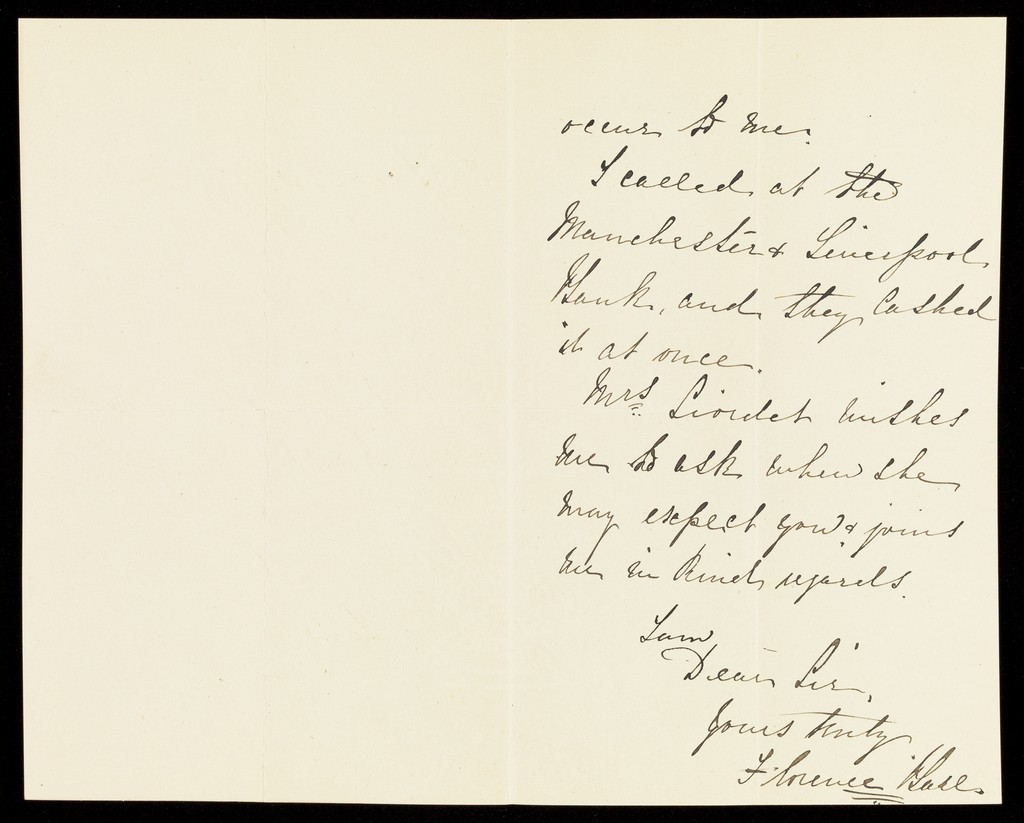 occur to me.
I called at the
Manchester & Liverpool
Bank, and they cashed
it at once.
Mrs. Liordet wishes
me to ask when she
may expect you & joins
me in kind regards.
I am
Dear Sir,
Yours truly
Florence